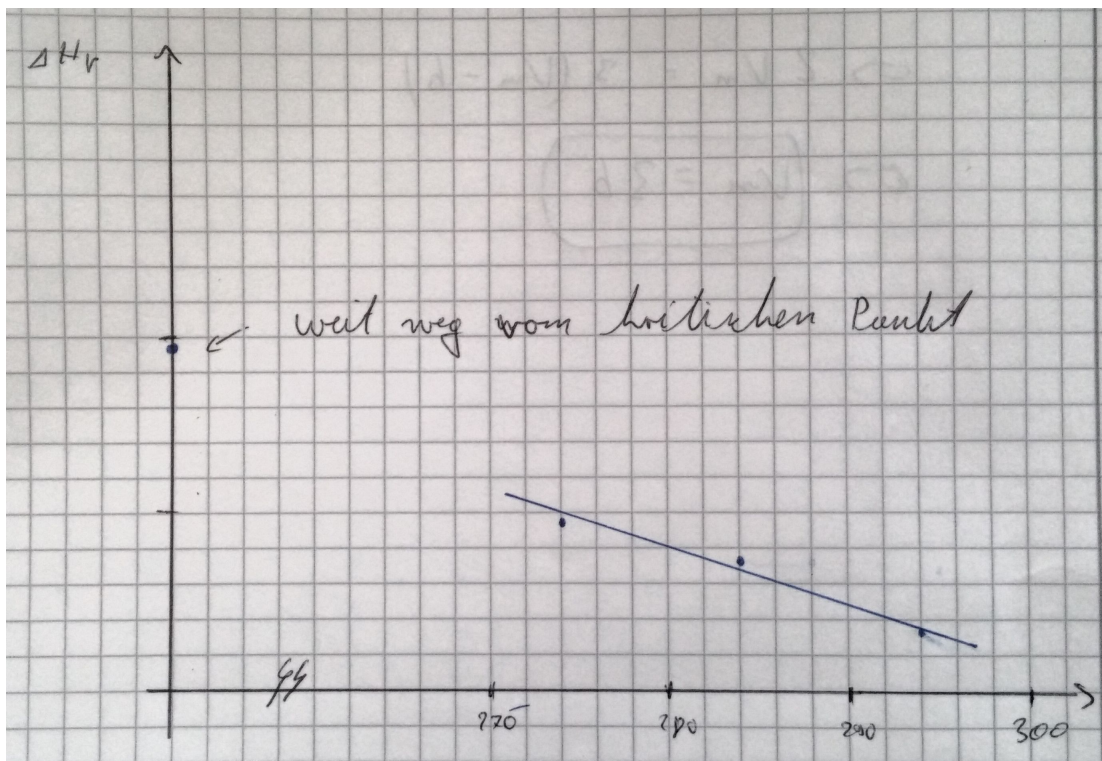 ΔHv
weit weg vom kritischen Punkt
270 280 290 300